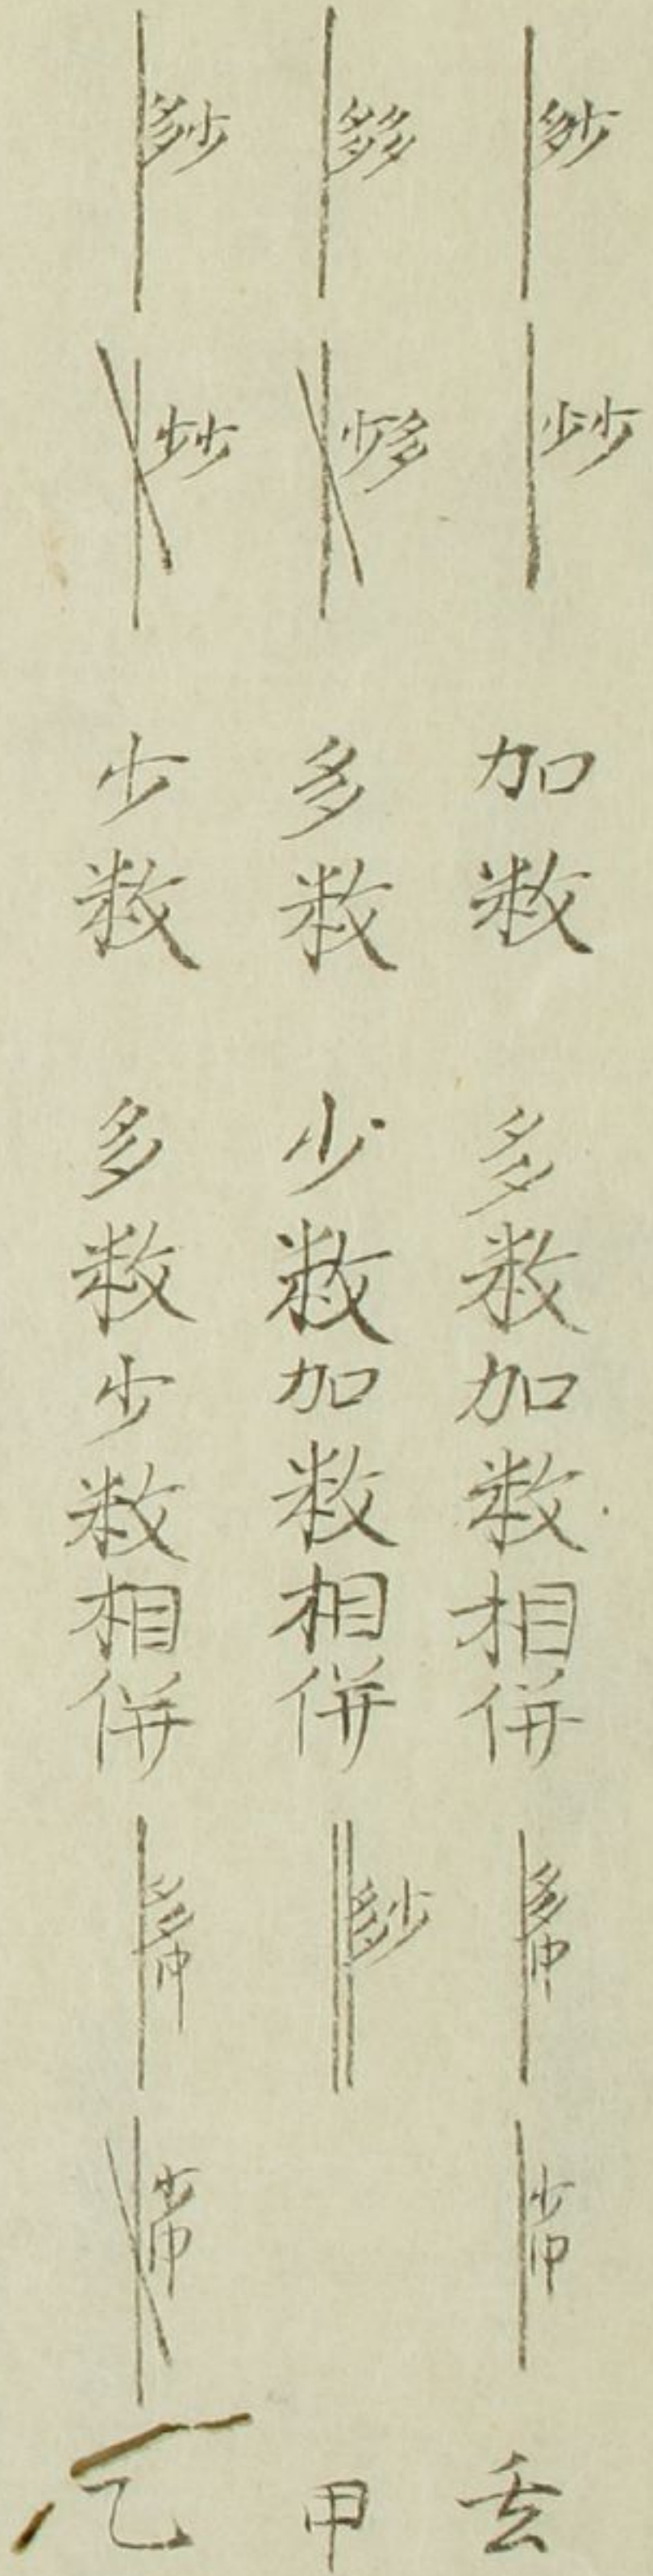 多少 少少 加数 多数加数相併 多中 少中
多多 少多 多数 少数加数相併 多少 甲
多少 少少 少数 多数少数相併 多中 少中 乙